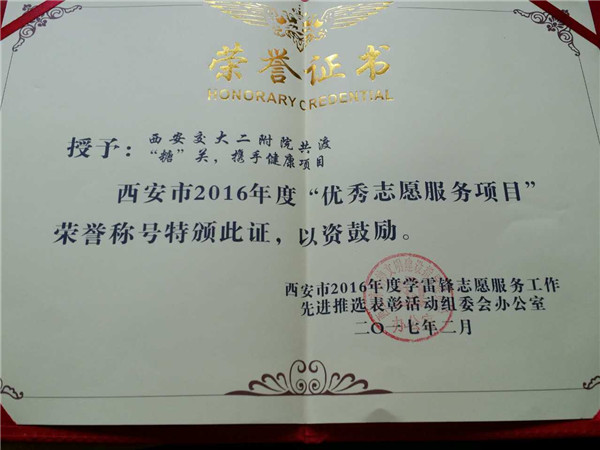 荣誉证书
HONORARY CREDENTIAL
授予：西安交大二附院共渡
“糖”关，携手健康项目
西安市2016年度“优秀志愿服务项目”
荣誉称号特颁此证，以资鼓励。
西安市2016年度学雷锋志愿服务工作
先进推选表彰活动组委会办公室
二〇一七年二月